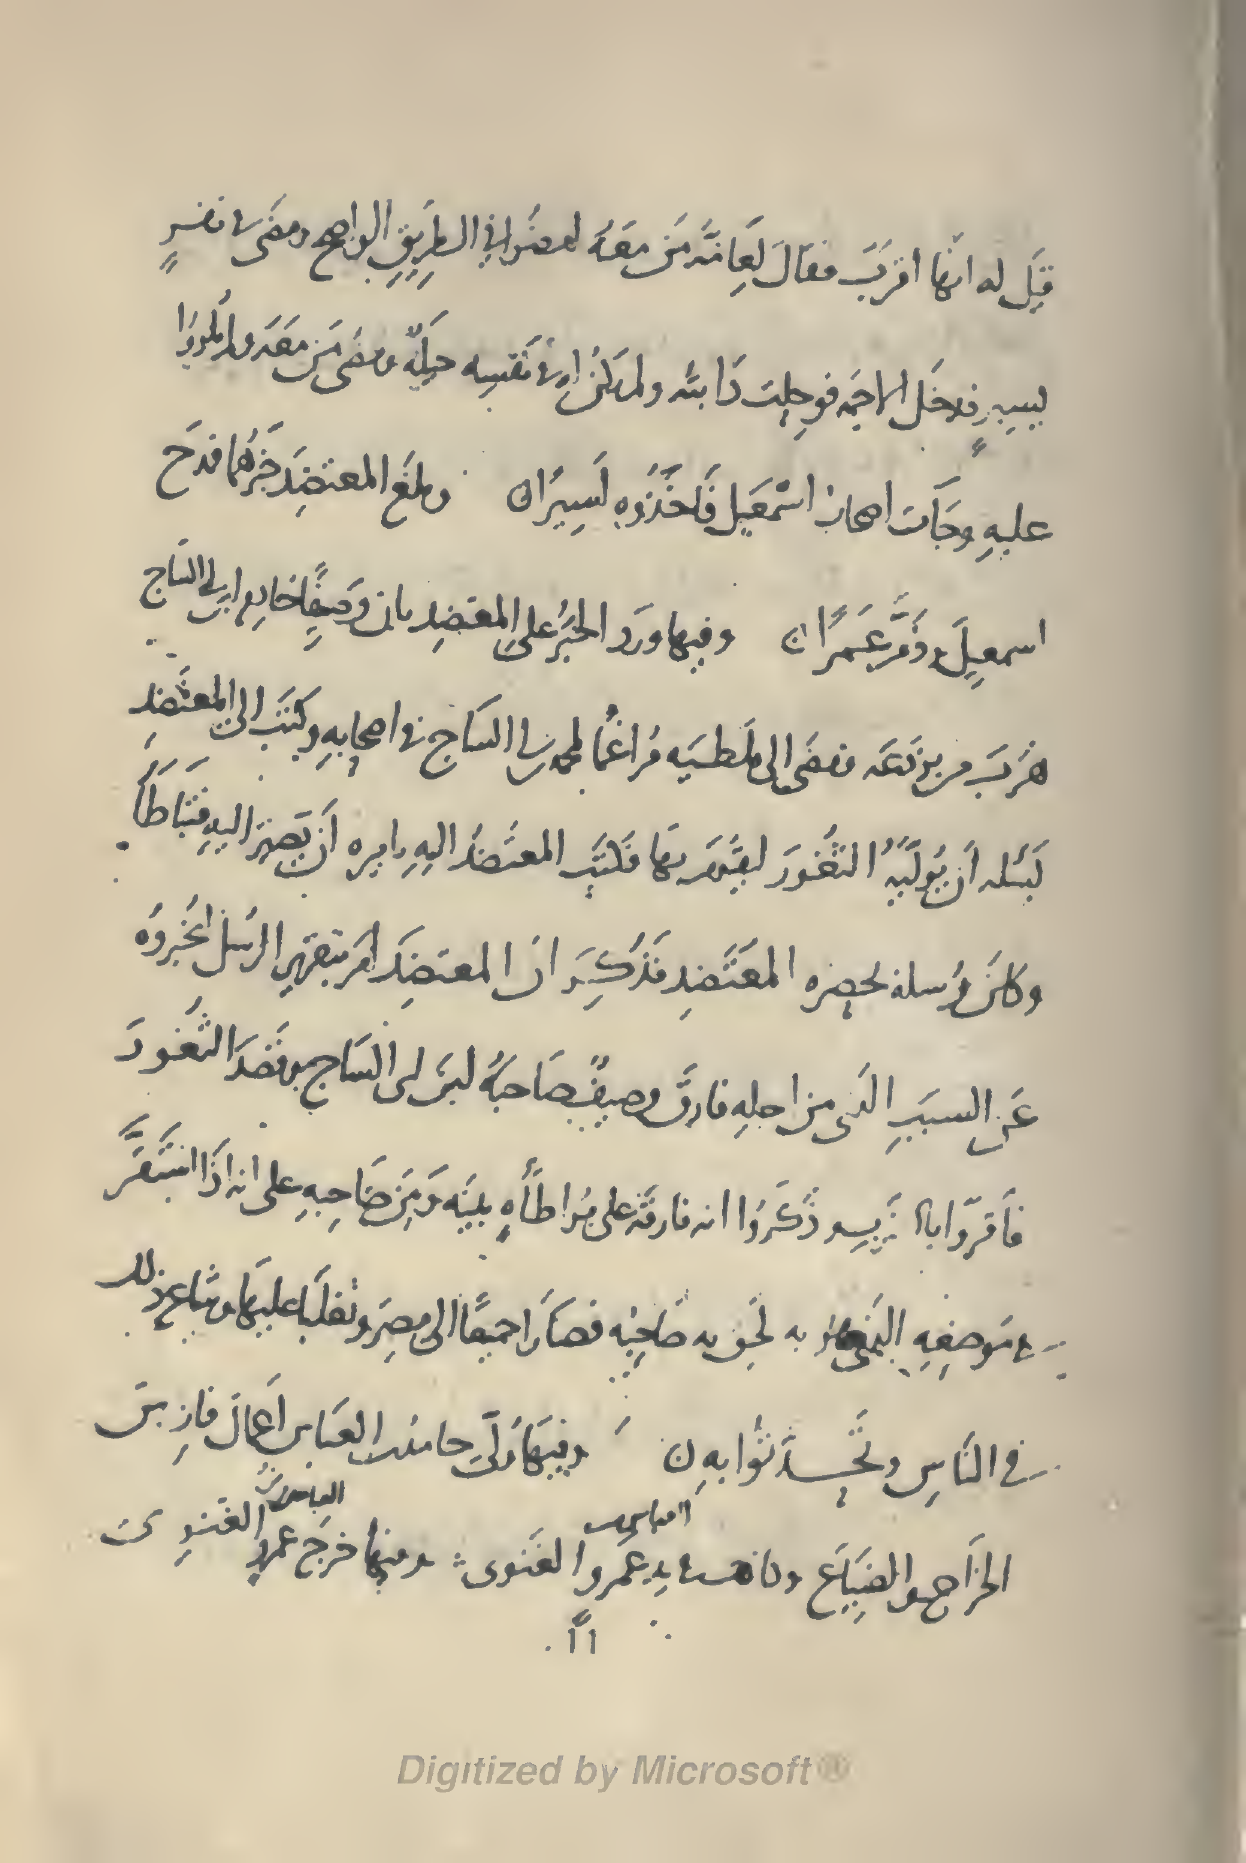 قيل له انها اقرب فقال لعامة من معه امضوا في الطريق الواضح ومضى في نفر
يسير فدخل الاجمة فوحلت دابته ولم يكن له في نفسه حيلة ومضى من معه ولم يلووا
عليه وجات اصحاب اسمعيل فاخذوه اسيرا ن وبلغ المعتضد خبرهما فمدح
اسمعيل وذم عمرا ن وفيها ورد الخبر على المعتضد بان وصيفا خادم ابن ابي الساج
هرب من برذعه ومضى الى ملطيه مراغما لمحمد بن ابي الساج في اصحابه وكتب الى المعتضد
يسله ان يوليه الثغور ليقوم بها فكتب المعتضد اليه يامره ان يصير اليه فتباطا
وكان رسله بحضره المعتضد فذكر ان المعتضد امر بتقرير الرسل ليخبروه
عن السبب الذي من اجله فارق وصيف صاحبه ابن ابي الساج وقصد الثغور
فاقروا بالضرب وذكروا انه فارقه على مواطاه بينه وبين صاحبه على انه اذا استقر
في موضعه الذي هو به لحق به صاحبه فصارا جميعا الى مصر وتغلبا عليها وشاع ذلك
في الناس وتحدثوا به ن وفيها ولى حامد بن العباس اعمال فارس
الخراج والضياع وكانت في يد عمرو الغنوي وفيها خرج عمرو الغنوي
اا
Digitized by Microsoft®